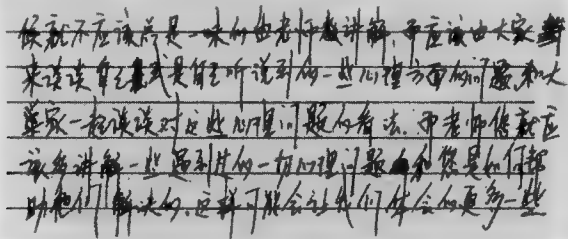 候就不应该总是一味的由老师您讲解,而应该由大家
来谈谈自己或是自己听说到的一些心理方面的问题,和大
家一起谈谈对这些心理问题的看法.而老师您就应
该多讲解一些遇到过的一切心理问题和您是如何帮
助他们解决的.这样可能会让我们体会的更多一些